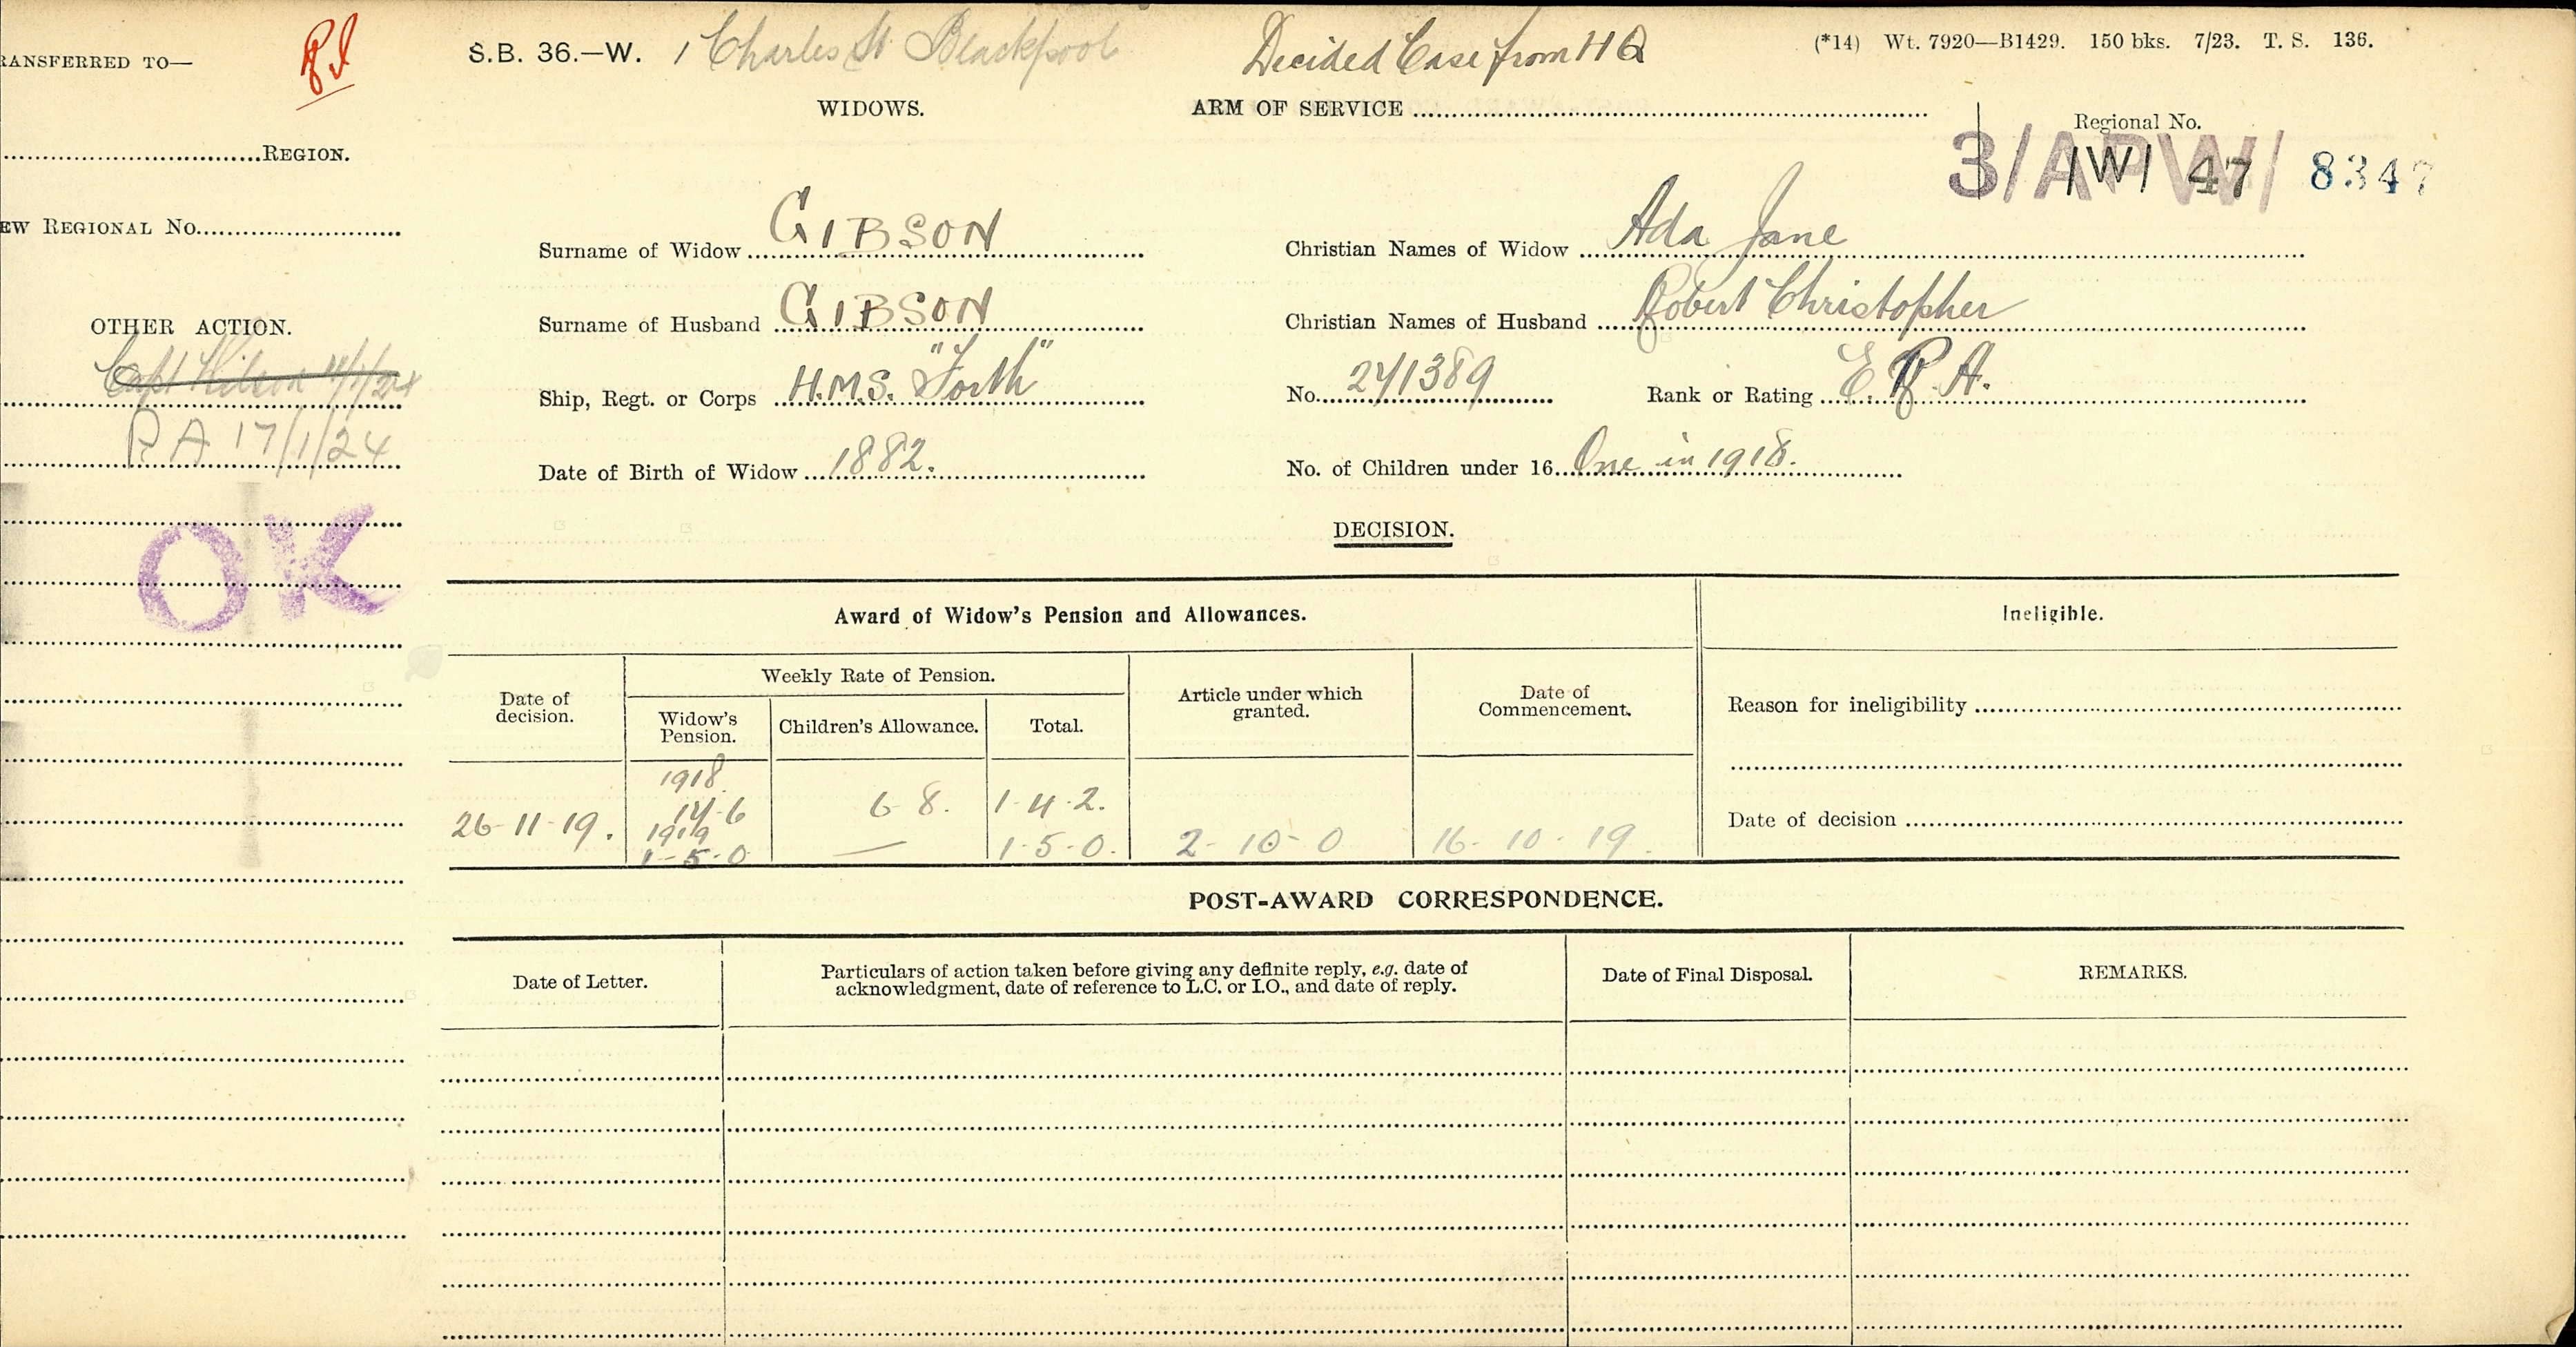 RANSFERRED TO—
S.B. 36.—W. 1 Charles St Blackpool
Decided Case from H Q
(*14) Wt. 7920—B1429. 150 bks. 7/23. T. S. 136.
WIDOWS.
ARM OF SERVICE
Regional No.
REGION.
3/APW/ /W/ 47 8347
EW REGIONAL No.
Surname of Widow GIBSON
Christian Names of Widow Ada Jane
Surname of Husband GIBSON
Christian Names of Husband Robert Christopher
OTHER ACTION.
Ship, Regt. or Corps H.M.S. "Forth"
No. 241389
Rank or Rating E.R.A.
RA 17/1/24
Date of Birth of Widow 1882.
No. of Children under 16 One in 1918.
OK
DECISION.
Award of Widow's Pension and Allowances.
Ineligible.
Weekly Rate of Pension.
Date of decision.
Widow's Pension.
Children's Allowance.
Total.
Article under which granted.
Date of Commencement.
Reason for ineligibility
1918.
14-6 6-8. 1-4-2.
26-11-19. 1919
1-5-0 — 1-5-0. 2-10-0 16-10-19.
Date of decision
POST-AWARD CORRESPONDENCE.
Date of Letter.
Particulars of action taken before giving any definite reply, e.g. date of
acknowledgment, date of reference to L.C. or I.O., and date of reply.
Date of Final Disposal.
REMARKS.